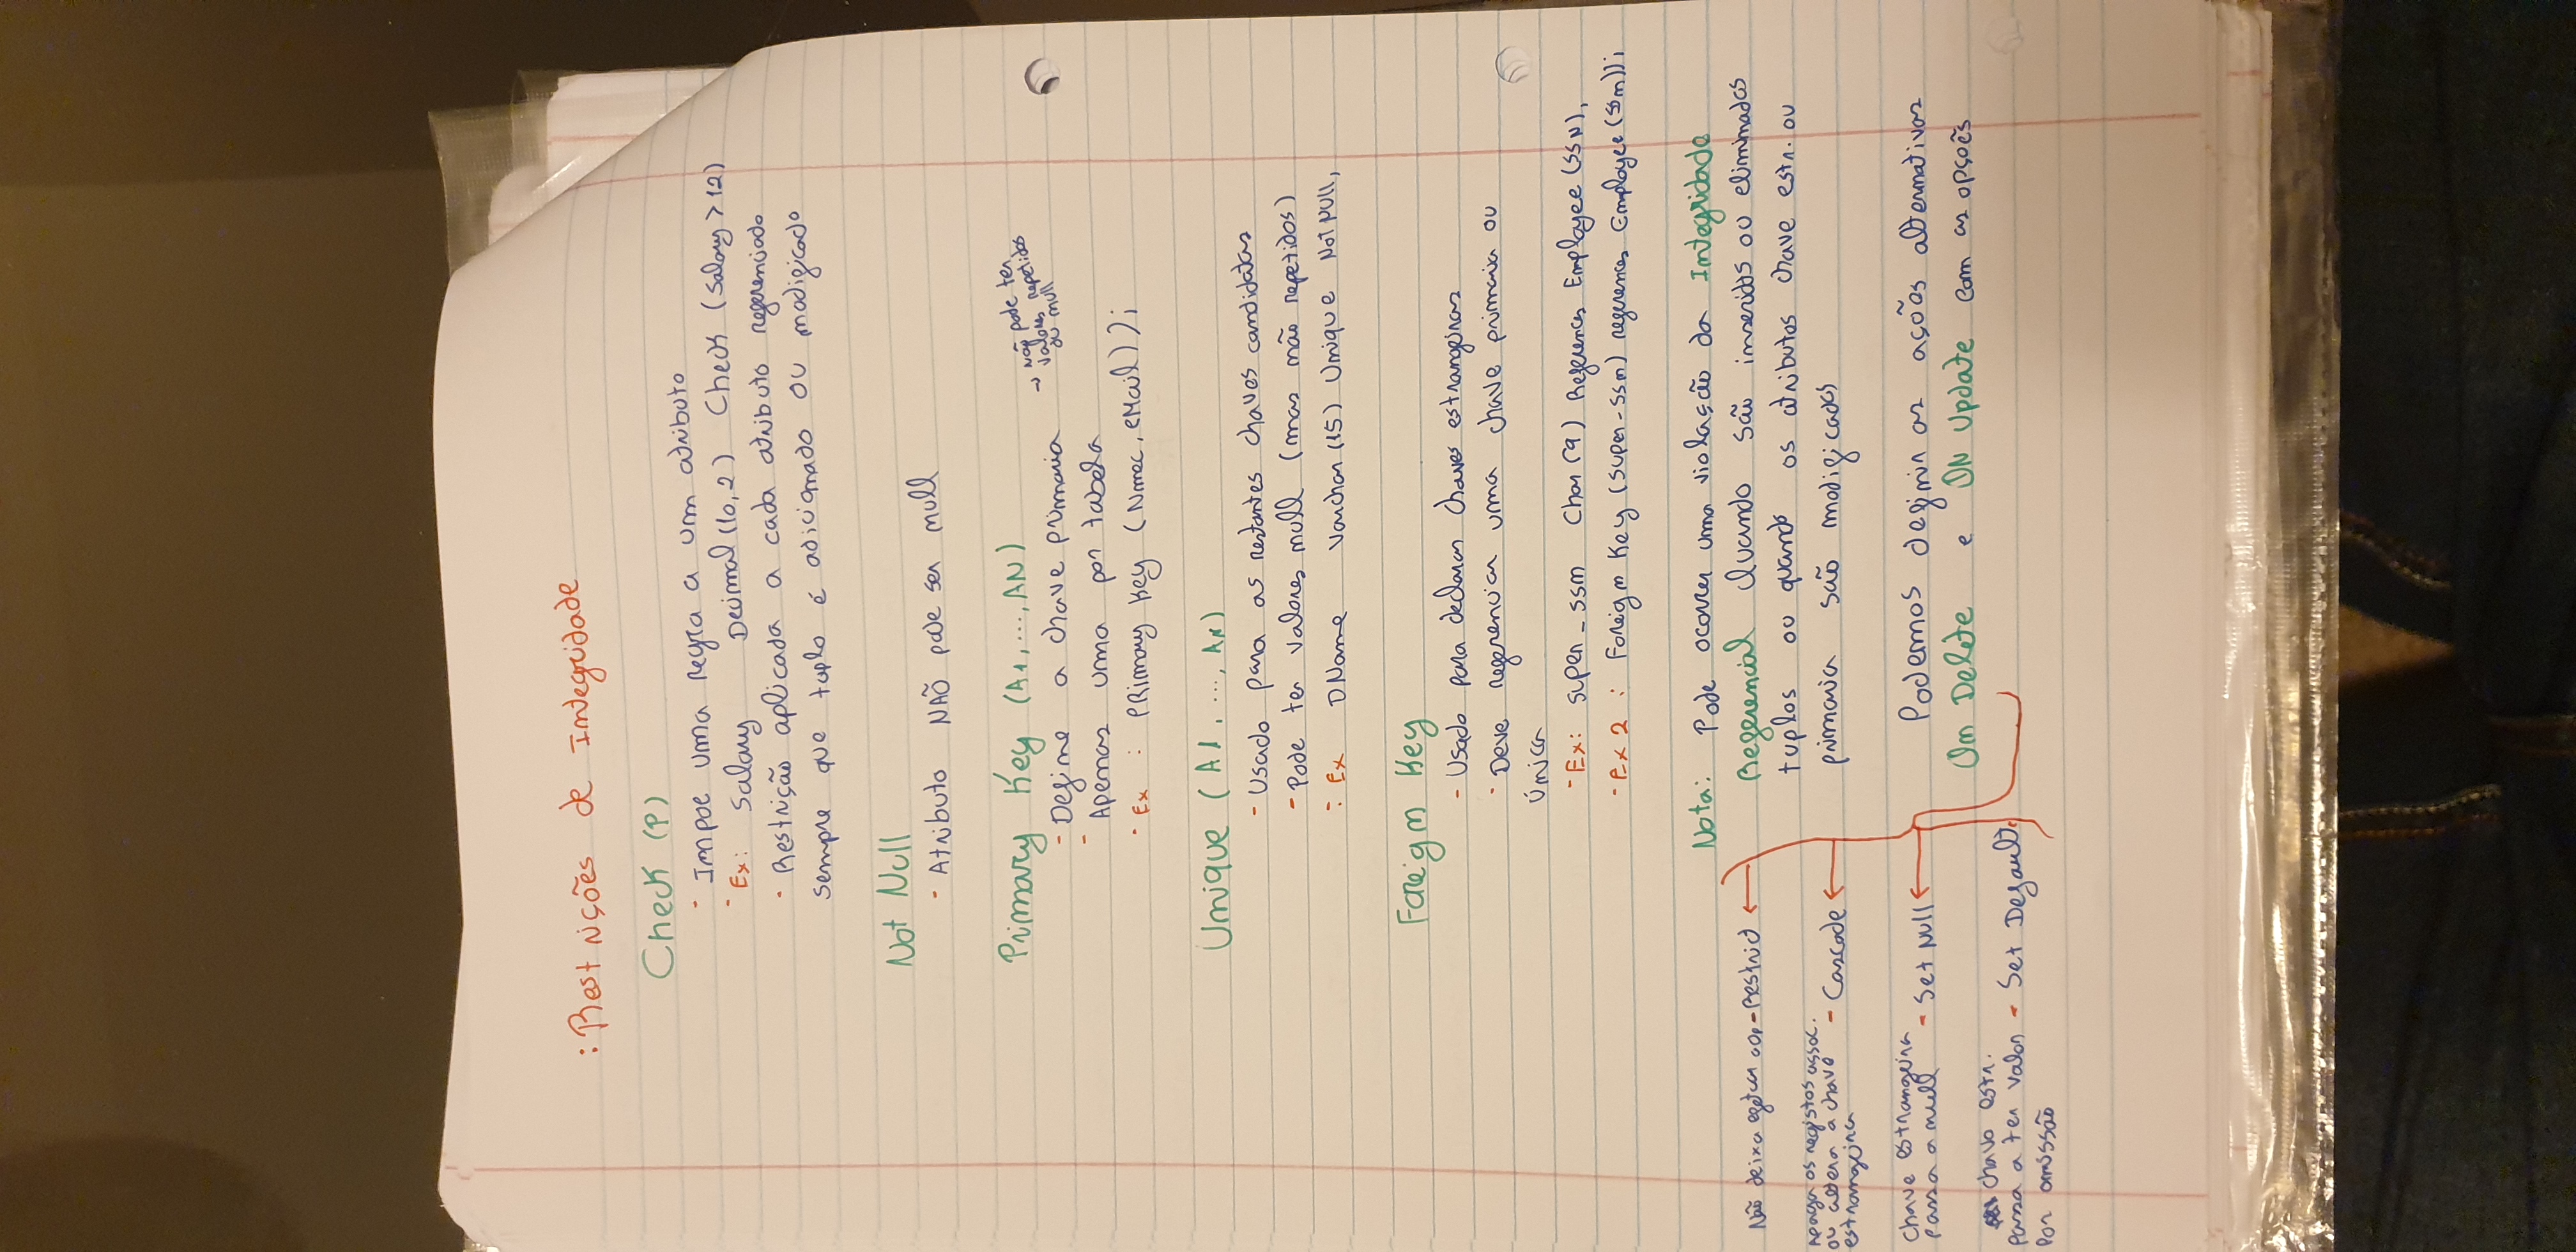 : Restrições de Integridade
Check (P)
- Impoe uma regra a um atributo
- Ex: Salary Decimal (10,2) Check (Salary > 12)
- Restrição aplicada a cada atributo referenciado
sempre que tuplo é adicionado ou modificado
Not Null
- Atributo NÃO pode ser null
Primary Key (A1, ..., AN)
- Define a chave primaria
→ Não pode ter
valores repetidos
ou null
- Apenas uma por tabela
- Ex : PRimary Key (Nmec, eMail));
Unique (A1, ..., AN)
- Usado para as restantes chaves candidatas
- Pode ter valores null (mas não repetidos)
: Ex DName Varchar (15) Unique Not NUll,
Foreign Key
- Usado para declarar chaves estrangeiras
- Deve referenciar uma chave primaria ou
Única
- Ex: super_ssn Char (9) References Employee (SSN),
- Ex 2 : Foreign Key (super-ssn) references Employee (ssn));
Nota: Pode ocorrer uma violação da Integridade
Referencial Quando são inseridos ou eliminados
tuplos ou quando os atributos chave estr. ou
primaria são modificados
Podemos definir as ações alternativas
On Delete e ON Update com as opçoẽs
Não deixa efetuar a Op - Restrict
Apaga os registos assoc.
ou altera a chave - Cascade
estrangeira
Chave estrangeira
Passa a null - Set Null
chave estr.
Passa a ter valor - Set Default
Por omissão